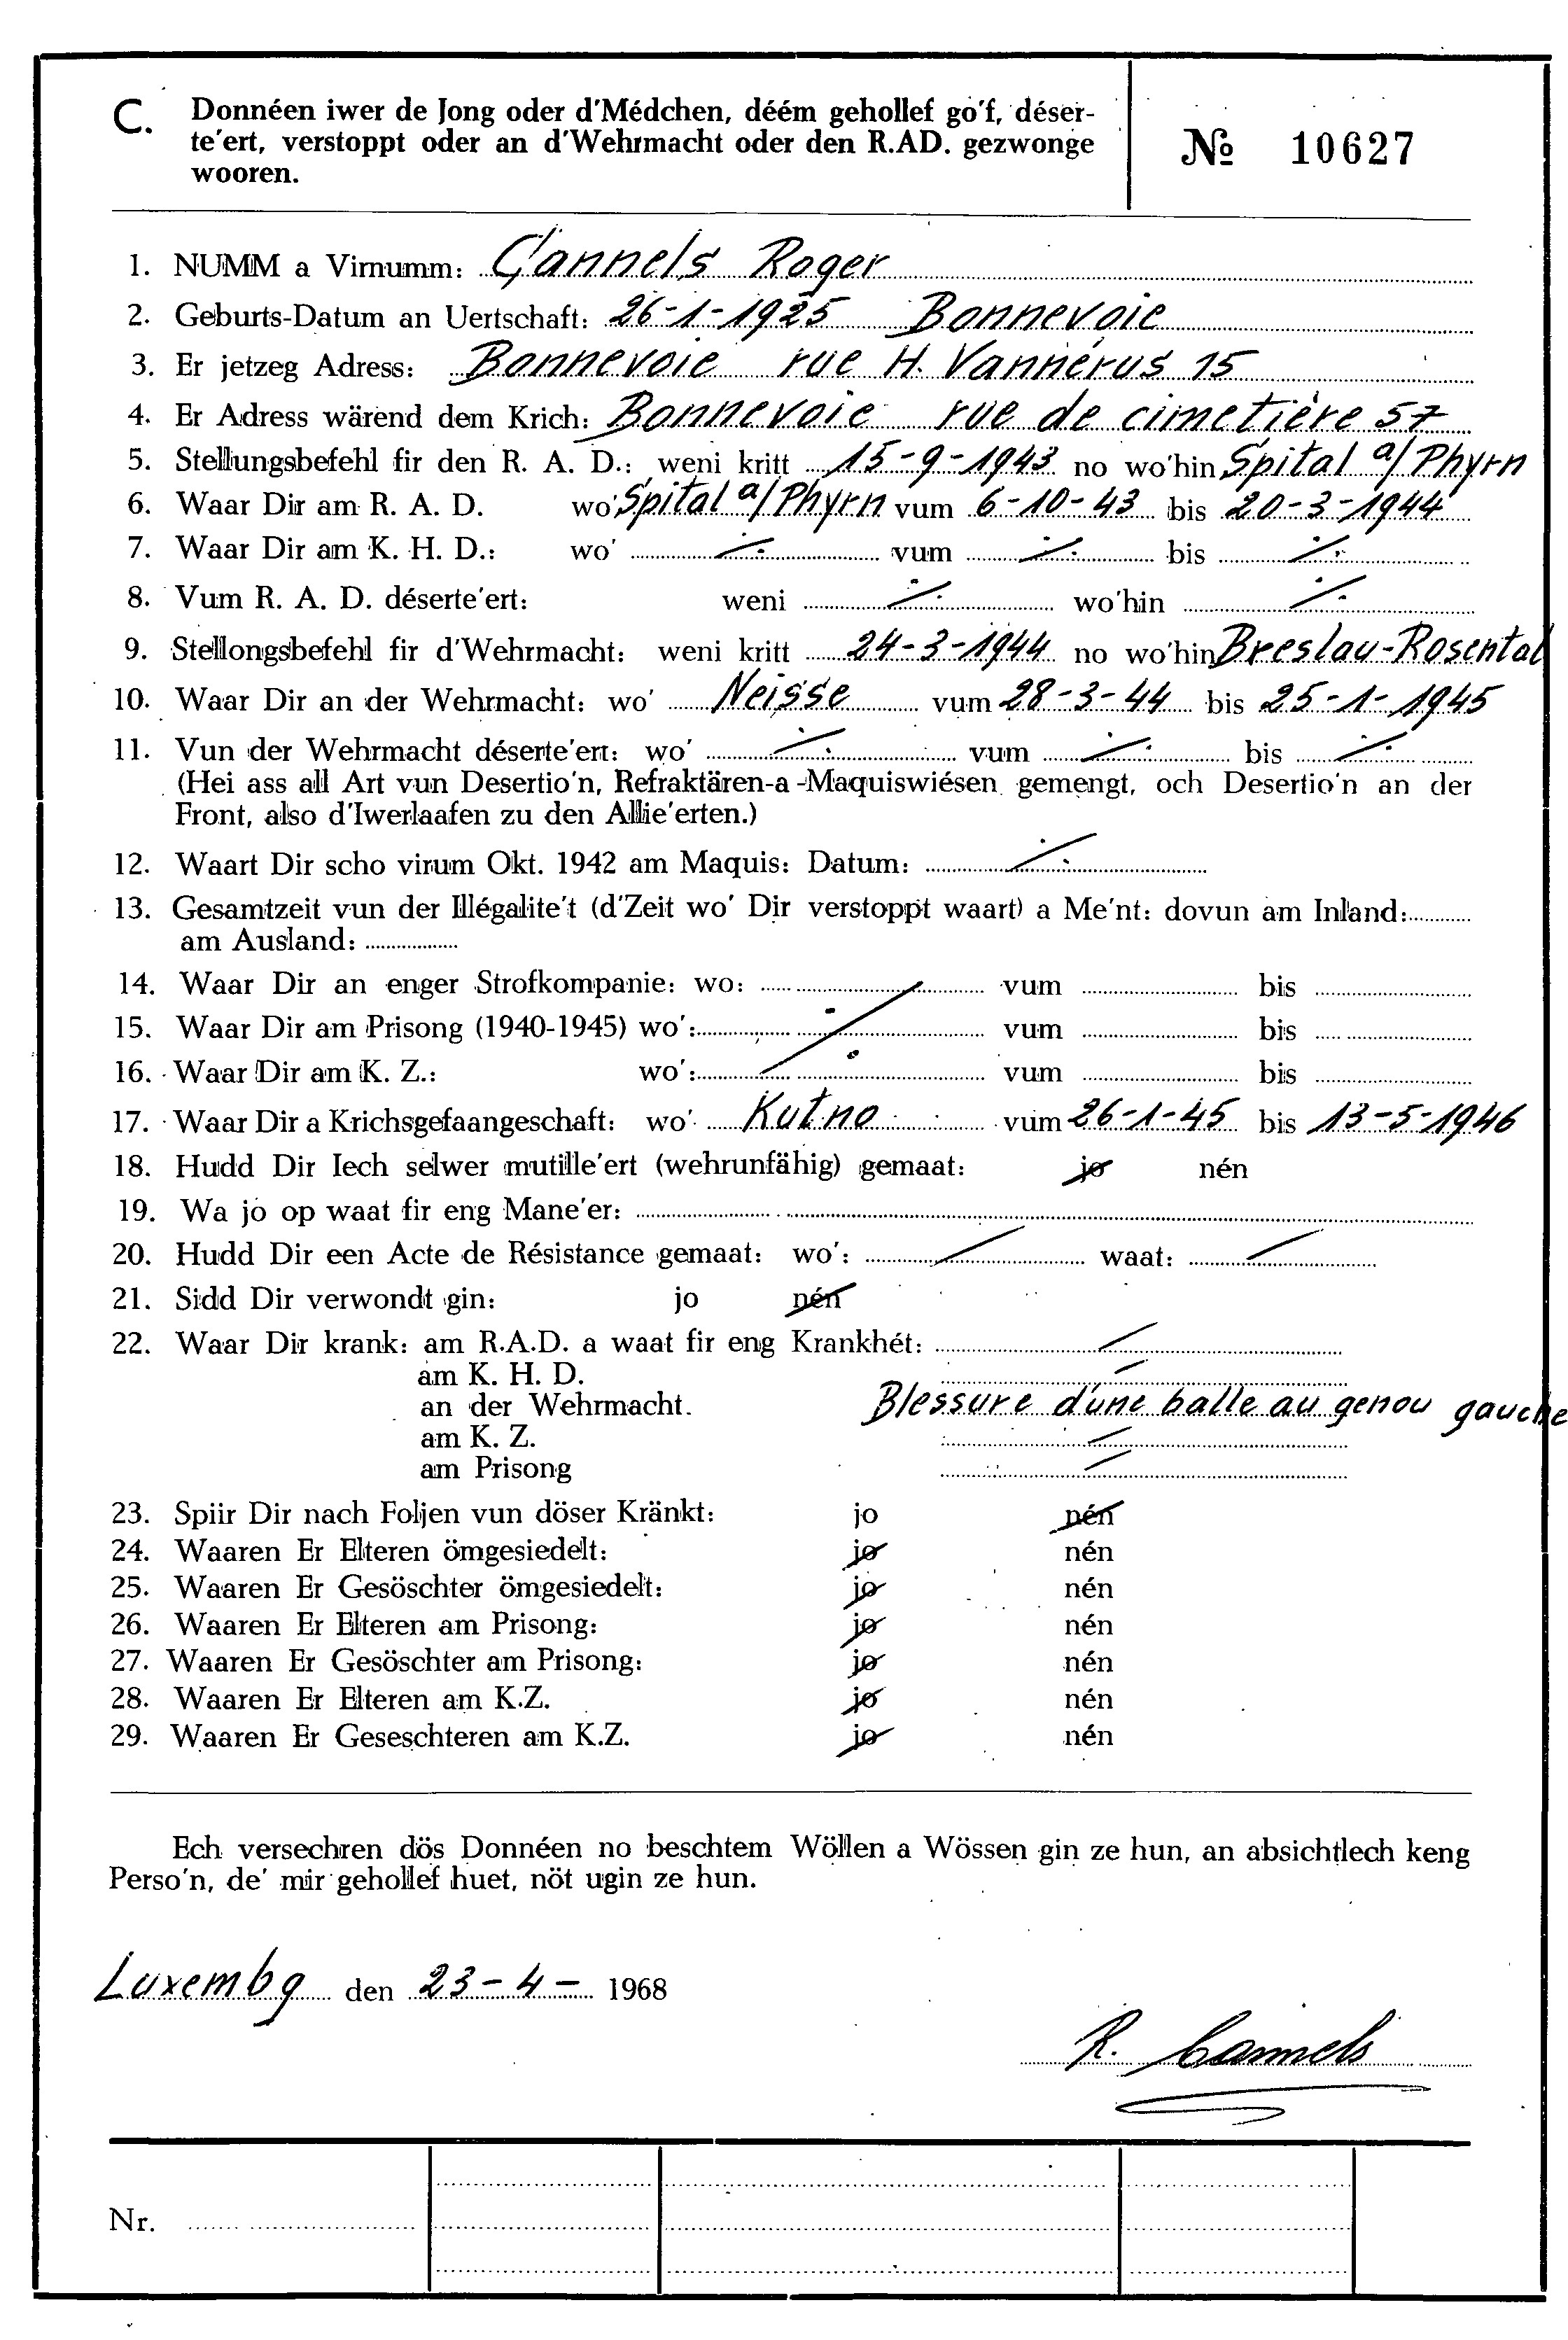 C. Donnéen iwer de Jong oder d'Médchen, déém gehollef go'f, déser-
te'ert, verstoppt oder an d'Wehrmacht oder den R.AD. gezwonge
wooren.
№ 10627
1. NUMM a Virnumm: Cannels Roger
2. Geburts-Datum an Uertschaft: 26-1-1925 Bonnevoie
3. Er jetzeg Adress: Bonnevoie rue H. Vannérus 15
4. Er Adress wärend dem Krich: Bonnevoie rue de cimetière 57
5. Stellungsbefehl fir den R. A. D.: weni kritt 15-9-1943 no wo'hin Spital a/Phyrn
6. Waar Dir am R. A. D. wo' Spital a/Phyrn vum 6-10-43 bis 20-3-1944
7. Waar Dir am K. H. D.: wo' ./. vum ./. bis ./.
8. Vum R. A. D. déserte'ert: weni ./. wo'hin ./.
9. Stellongsbefehl fir d'Wehrmacht: weni kritt 24-3-1944 no wo'hin Breslau-Rosental
10. Waar Dir an der Wehrmacht: wo' Neisse vum 28-3-44 bis 25-1-1945
11. Vun der Wehrmacht déserte'ert: wo' ./. vum ./. bis ./.
(Hei ass all Art vun Desertio'n, Refraktären-a-Maquiswiésen gemengt, och Desertio'n an der
Front, also d'Iwerlaafen zu den Allie'erten.)
12. Waart Dir scho virum Okt. 1942 am Maquis: Datum: ./.
13. Gesamtzeit vun der Illégalite't (d'Zeit wo' Dir verstoppt waart) a Me'nt: dovun am Inland:
am Ausland:
14. Waar Dir an enger Strofkompanie: wo: vum bis
15. Waar Dir am Prisong (1940-1945) wo': ./. vum bis
16. Waar Dir am K. Z.: wo': vum bis
17. Waar Dir a Krichsgefaangeschaft: wo' Kutno vum 26-1-45 bis 13-5-1946
18. Hudd Dir Iech selwer mutille'ert (wehrunfähig) gemaat: jo nén
19. Wa jo op waat fir eng Mane'er:
20. Hudd Dir een Acte de Résistance gemaat: wo': / waat: /
21. Sidd Dir verwondt gin: jo nén
22. Waar Dir krank: am R.A.D. a waat fir eng Krankhét: /
am K. H. D. /
an der Wehrmacht. Blessure d'une balle au genou gauche
am K. Z. /
am Prisong /
23. Spiir Dir nach Foljen vun döser Kränkt: jo nén
24. Waaren Er Elteren ömgesiedelt: jo nén
25. Waaren Er Gesöschter ömgesiedelt: jo nén
26. Waaren Er Elteren am Prisong: jo nén
27. Waaren Er Gesöschter am Prisong: jo nén
28. Waaren Er Elteren am K.Z. jo nén
29. Waaren Er Geseschteren am K.Z. jo nén
Ech versechren dös Donnéen no beschtem Wöllen a Wössen gin ze hun, an absichtlech keng
Perso'n, de' mir gehollef huet, nöt ugin ze hun.
Luxembg den 23-4- 1968
R. Cannels
Nr.